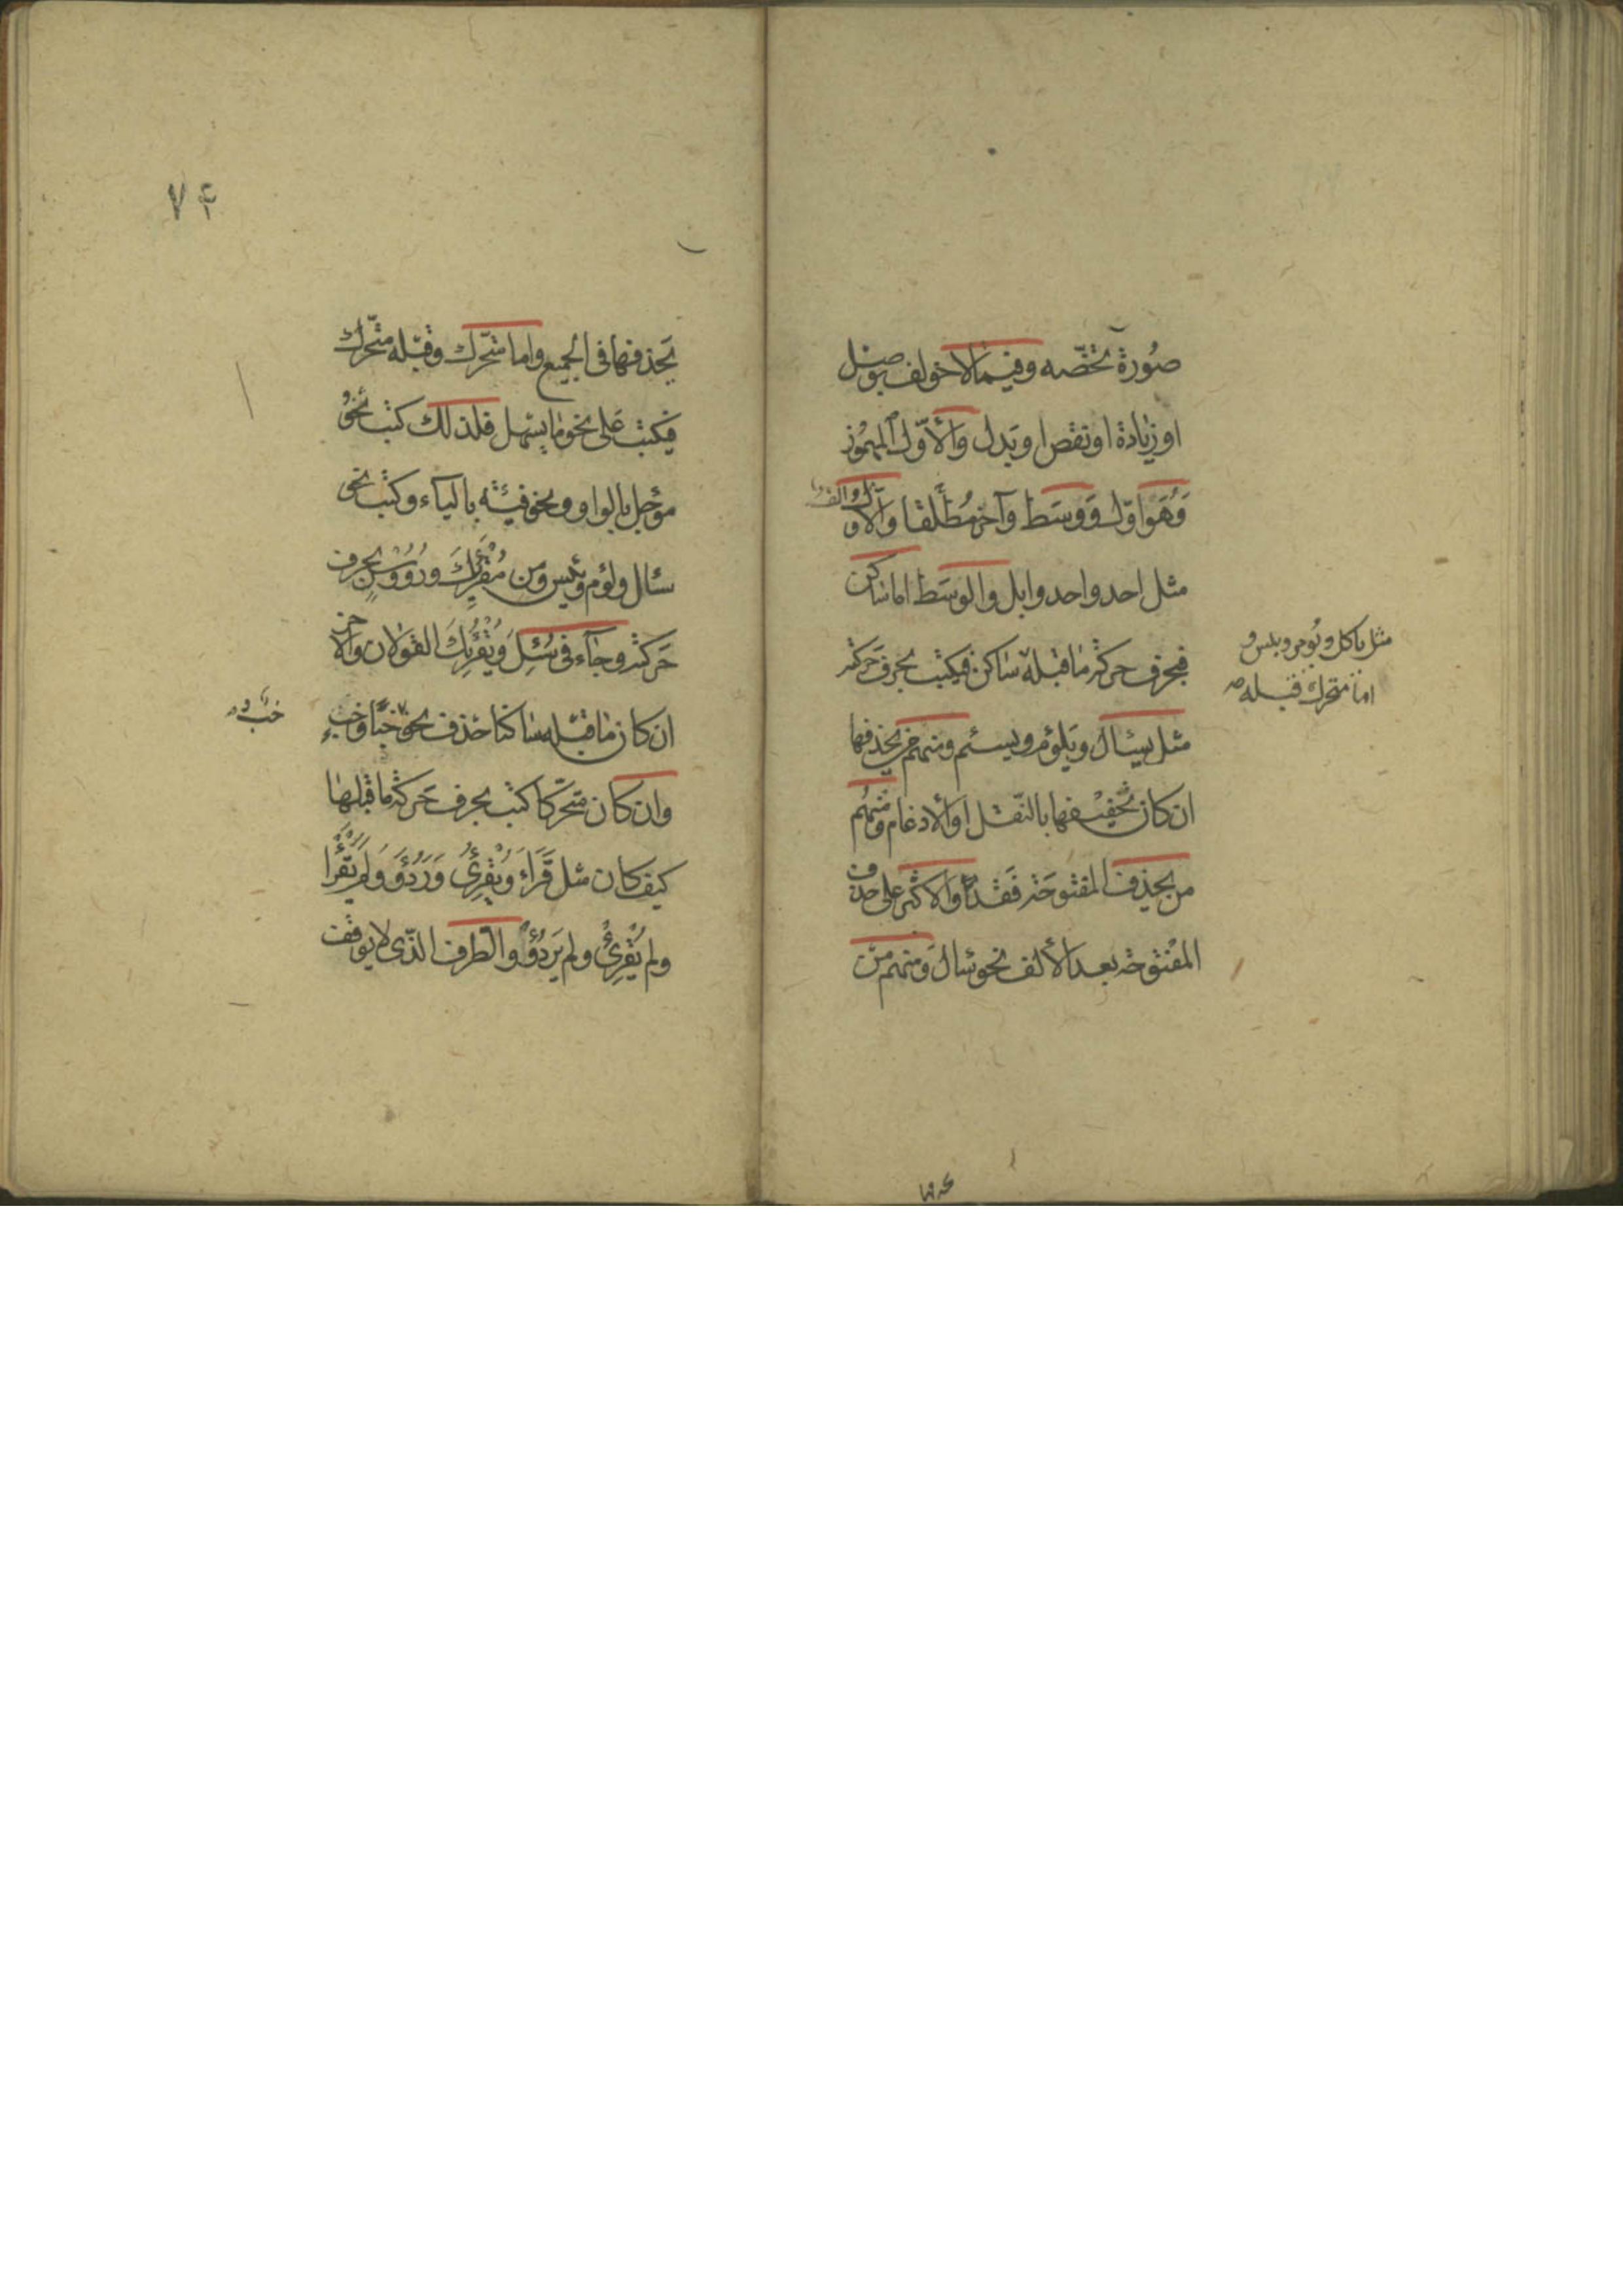 صُورة تخصّه وفيما لا خولف بوصل
او زيادة او نقص او بَدل وَالاوّل المهموز
وَهُوَ اوّل وَوسَط وَآخر مُطلقا وَالاول الف
مثل احد واحد وابل والوسَط اما ساكن
فبحرف حركة ما قبله ساكن فيكتب بحرف حَركته
مثل ياكل ويُومن وبئس و
اما متحرك قبله
مثل يسئال ويَلؤم ويسئم ومنهم من يحذفها
ان كان تخفيفها بالنّقل او الادغام ومنهم
من يحذف المفتوحَة فَقَد وَالاكثر على حذف
المفتوحة بعد الألف نحو سٰال وَمنهم من
٧۴
يَحذفها فى الجميع واما متحّرك وقبله متحّرك
فيكتب عَلى نحو ما يسّهل فلذلك كتب نحوُ
مؤجل بالواو ونحو فِئَته بالياء وكتب نحو
سئال ولؤم ويئس ومن مُقْرِئِكَ ورُؤُوسٍ بحرف
حَركته وجاء فى سُئِلَ وَيُقْرِئُكَ القولان وَالاخر
ان كان ما قبله ساكنا حذف نحو خبْأ وخبْءٍ
خبْء
وان كان متحرّكا كتب بحرف حَركة ما قبلها
كيف كان مثل قَرَاءَ وَيُقْرِئُ وَرَدُؤَ وَلَم يَقْرَأ
ولم يُقْرِئْ ولم يَردُؤْ والطرف الذّى لا يوقف